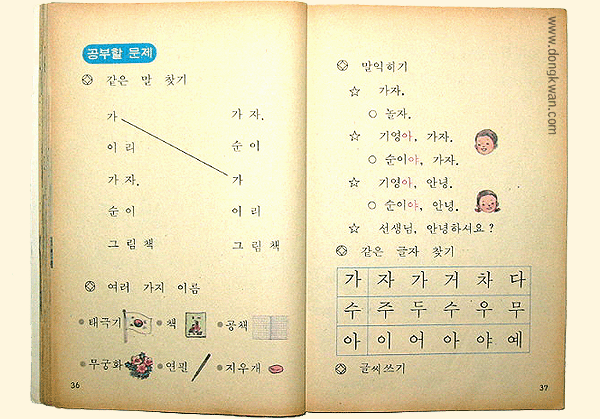 공부할 문제
같은 말 찾기
가 가 자.
이 리 순 이
가 자. 가
순 이 이 리
그 림 책 그 림 책
여러 가지 이름
태극기 책 공책
무궁화 연필 지우개
36
말익히기
가자.
놀자.
기영아, 가자.
순이야, 가자.
기영아, 안녕.
순이야, 안녕.
선생님, 안녕하셔요?
같은 글자 찾기
가 자 가 거 차 다
수 주 두 수 우 무
아 이 어 아 야 예
글씨쓰기
37
www.dongkwan.com